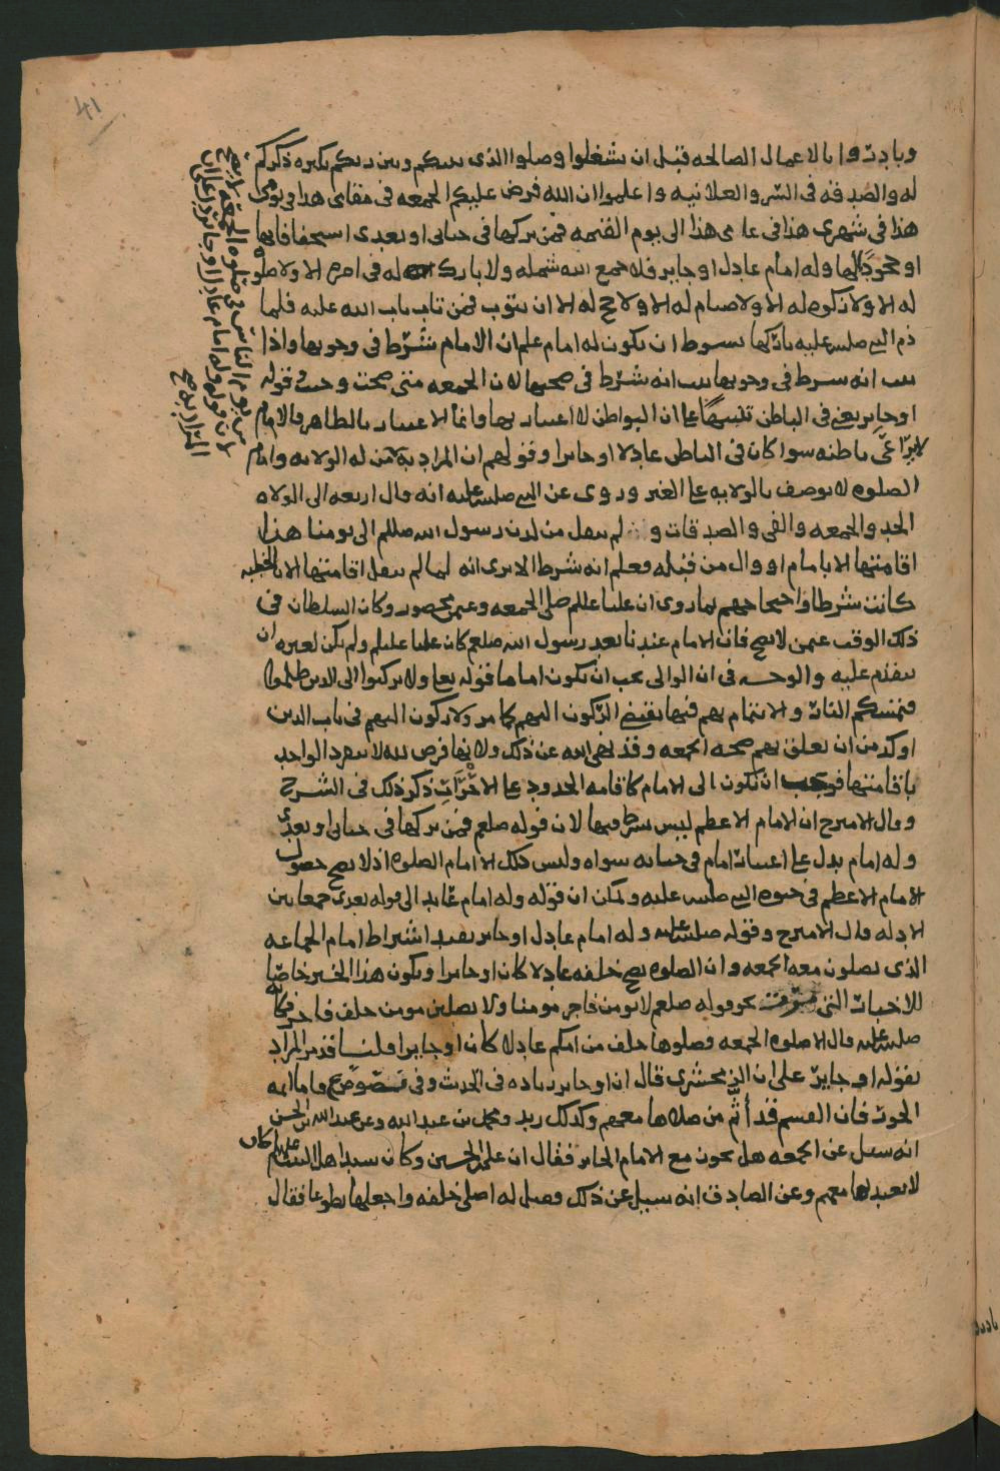 ٤١
وبادروا بالاعمال الصالحه قبل ان تشغلوا وصلوا الذى بينكم وبين ربكم بكثره ذكركم
له والصدقه فى السر والعلانيه واعلموا ان الله فرض عليكم الجمعه فى مقامى هذا فى يومى
هذا فى شهرى هذا فى عامى هذا الى يوم القيمه فمن تركها فى حياتى او بعدى استخفافا بها
او جحودًا لها وله امام عادل او جاير فلا جمع الله شمله ولا بارك له فى امره الا ولا صلوه
له الا ولا زكوه له الا ولا صيام له الا ولا حج له الا ان يتوب فمن تاب تاب الله عليه فلما
ذم النبى صلى الله عليه تاركها بشرط ان يكون له امام علم ان الامام شرط فى وجوبها واذا
ثبت انه شرط فى وجوبها ثبت انه شرط فى صحتها لان الجمعه متى صحت وجبت قوله
او جاير يعنى فى الباطن تنبيهًا على ان البواطن لا اعتبار بها وانما الاعتبار بالظاهر والامام
لا يراعى باطنه سوا كان فى الباطن عادلا او جايرا وقولهم ان المراد به من له الولايه وامام
الصلوه لا يوصف بالولايه على الغير وروى عن النبى صلى الله عليه انه قال اربعه الى الولاه
الحد والجمعه والفى والصدقات و لم ينقل من لدن رسول الله صللم الى يومنا هذا
اقامتها الا بامام او وال من قبله فعلم انه شرط الا ترى انه لما لم ينقل اقامتها الا بالخطبه
كانت شرطا واحتجاجهم بما روى ان عليا عللم صلى الجمعه وعثمن محصور وكان السلطان فى
ذلك الوقت عثمن لا يصح فان الامام عندنا بعد رسول الله صلعم كان عليا عليلم ولم يكن لغيره ان
يتقدم عليه والوجه فى ان الوالى يجب ان يكون اماما قوله تعا ولا تركنوا الى الذين ظلموا
فتمسكم النار والائتمام بهم فيها يقتضى الركون اليهم كما مر ولا ركون اليهم فى باب الدين
اوكد من ان يعلق بهم صحه الجمعه وقد نهى الله عن ذلك ولانها فرض لله لا ينفرد الواحد
باقامتها فوجب ان تكون الى الامام كاقامه الحدود على الاحرار ذكر ذلك فى الشرح
وقال الامير ح ان الامام الاعظم ليس شرطا فيها لان قوله صلعم فمن تركها فى حياتى او بعدى
وله امام يدل على اعتبار امام فى حياته سواه وليس ذلك الا امام الصلوه اذ لا يصح حصول
الامام الاعظم فى حيوه النبى صلى الله عليه ويمكن ان قوله وله امام عايد الى قوله بعدى جمعا بين
الادله قال الامير ح وقوله صلى الله عليه وله امام عادل او جاير يفيد اشتراط امام الجماعه
الذى يصلون معه الجمعه وان الصلوه تصح خلفه عادلا كان او جايرا ويكون هذا الخبر خاصًا
للاخبار التى مرت نحو قوله صلعم لا يومن فاجر مومنا ولا يصلين مومن خلف فاجر فكانه
صلى الله عليه قال الا صلوه الجمعه فصلوها خلف من امكم عادلا كان او جايرا وقلنا قد مر المراد
بقوله او جاير على ان الزمخشرى قال ان او جاير زياده فى الحديث وفى واما ايمه
الجور فان القسم قد أثم من صلاها معهم وكذلك زيد ومحمد بن عبد الله وعن عبد الله بن الحسن
انه سئل عن الجمعه هل تجوز مع الامام الجاير فقال ان على بن الحسين وكان سيد اهل البيت عليهم السلام كان
لا يعتد بها معهم وعن الصادق انه سئل عن ذلك وقيل له اصلى خلفه واجعلها تطوعا فقال